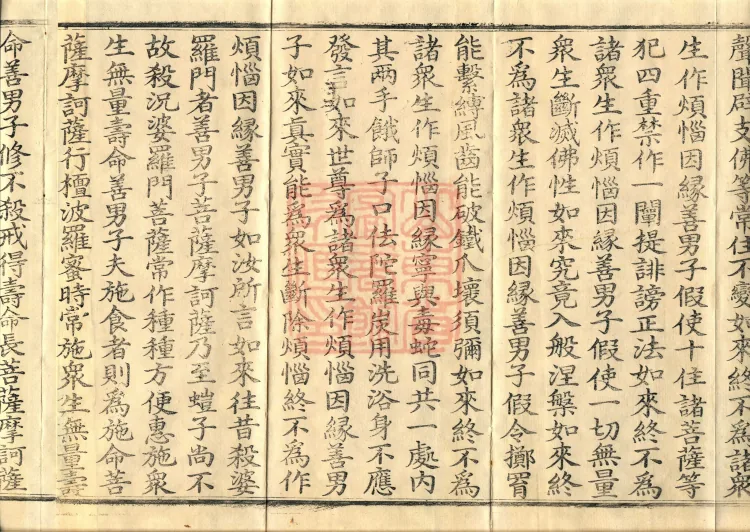 聲聞辟支佛等常住不變如來終不爲諸衆
生作煩惱因緣善男子假使十住諸菩薩等
犯四重禁作一闡提誹謗正法如來終不爲
諸衆生作煩惱因緣善男子假使一切無量
衆生斷滅佛性如來究竟入般涅槃如來終
不爲諸衆生作煩惱因緣善男子假令擲罥
能繫縛風齒能破鐵爪壞須彌如來終不爲
諸衆生作煩惱因緣寧與毒蛇同共一處內
其兩手餓師子口佉陀羅炭用洗浴身不應
發言如來世尊爲諸衆生作煩惱因緣善男
子如來眞實能爲衆生斷除煩惱終不爲作
煩惱因緣善男子如汝所言如來往昔殺婆
羅門者善男子菩薩摩訶薩乃至螘子尚不
故殺況婆羅門菩薩常作種種方便惠施衆
生無量壽命善男子夫施食者則爲施命菩
薩摩訶薩行檀波羅蜜時常施衆生無量壽
命善男子修不殺戒得壽命長菩薩摩訶薩